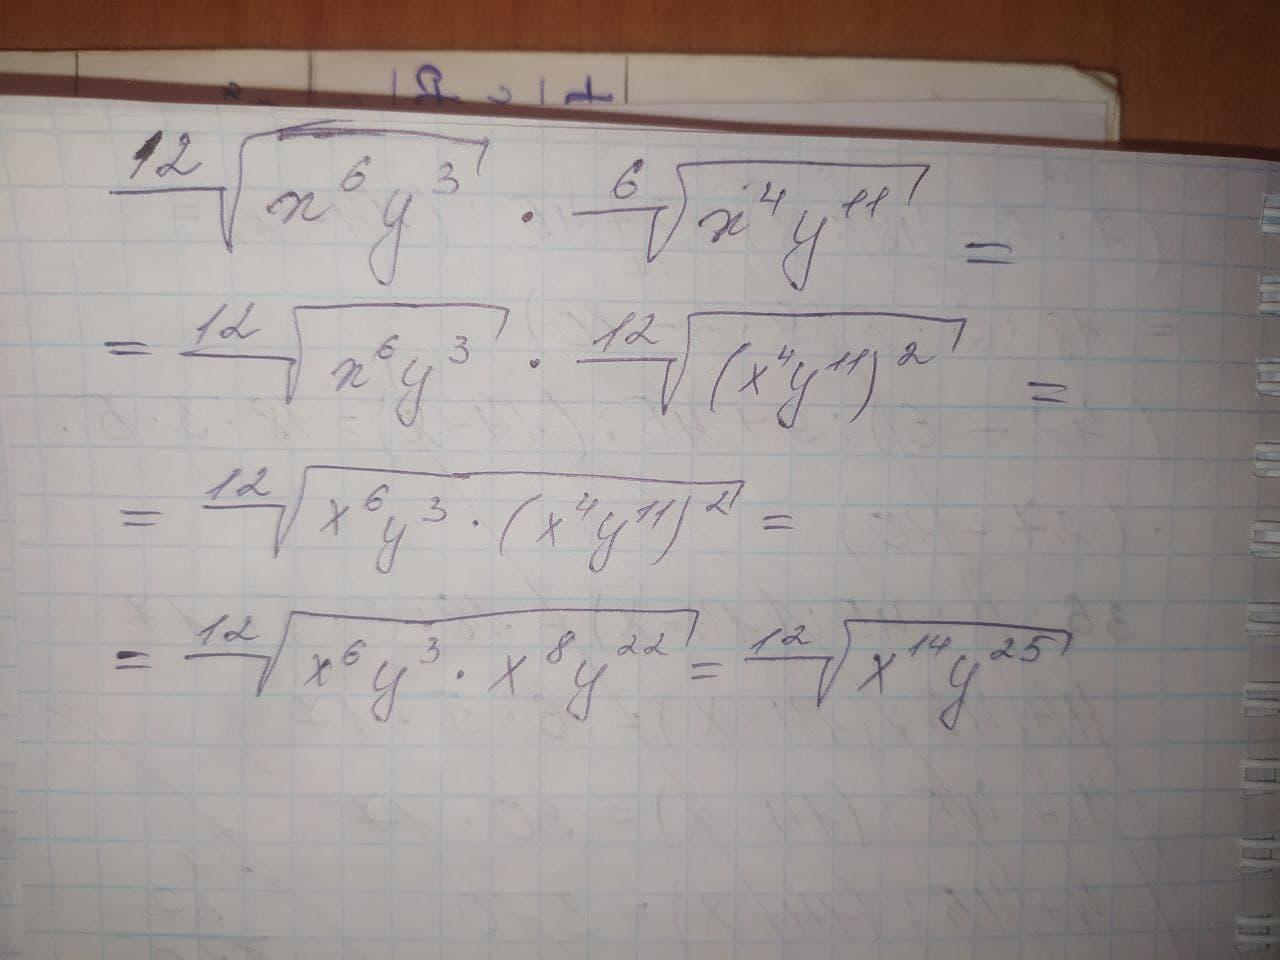 ¹²√(x⁶y³) · ⁶√(x⁴y¹¹) =
= ¹²√(x⁶y³) · ¹²√((x⁴y¹¹)²) =
= ¹²√(x⁶y³ · (x⁴y¹¹)²) =
= ¹²√(x⁶y³ · x⁸y²²) = ¹²√(x¹⁴y²⁵)